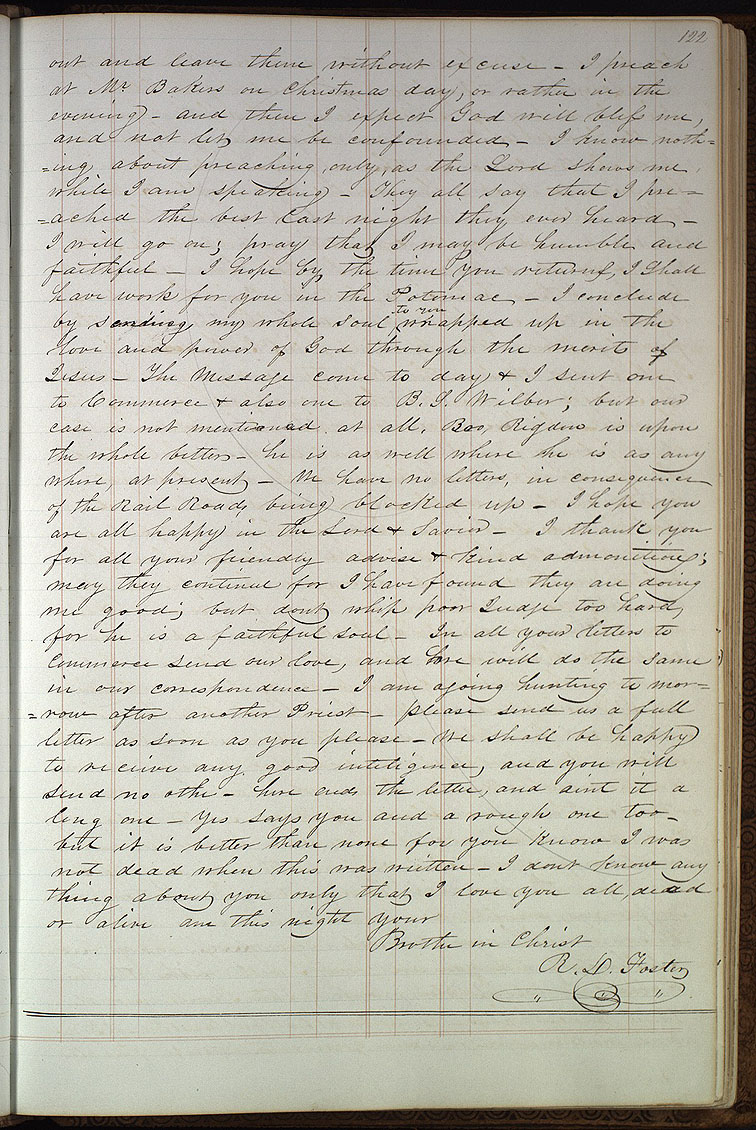 122
out and leave them without excuse – I preach
at Mr Bakers on Christmas day, or rather in the
evening – and then I expect God will bless me,
and not let me be confounded – I know noth=
=ing about preaching only as the Lord shows me,
while I am speaking – They all say that I pre=
=ached the best last night they ever heard –
I will go on; pray that I may be humble and
faithful – I hope by the time you return, I shall
have work for you in the Potomac – I conclude
to you
by sending my whole soul, wrapped up in the
love and power of God through the merits of
Jesus – The Message come to day & I sent one
to Commerce & also one to B. S. Wilber; but our
case is not mentioned at all, Bro, Rigdon is upon
the whole better – he is as well where he is as any
where, at present – We have no letters, in consequence
of the Rail Roads being blocked up – I hope you
are all happy in the Lord & Savior – I thank you
for all your friendly advise & kind admonitions;
may they continue for I have found they are doing
me good; but dont whip poor Judge too hard,
for he is a faithful soul – In all your letters to
Commerce send our love, and we will do the same
in our correspondence – I am agoing hunting to mor=
=row after another Priest – please send us a full
letter as soon as you please – We shall be happy
to receive any good inteligence, and you will
send no othe – here ends the letter, and aint it a
long one – yes says you and a rough one too –
but it is better than none for you know I was
not dead when this was written – I dont know any
thing about you only that I love you all, dead
or alive am this night your
Brothe in Christ
R. D. Foster